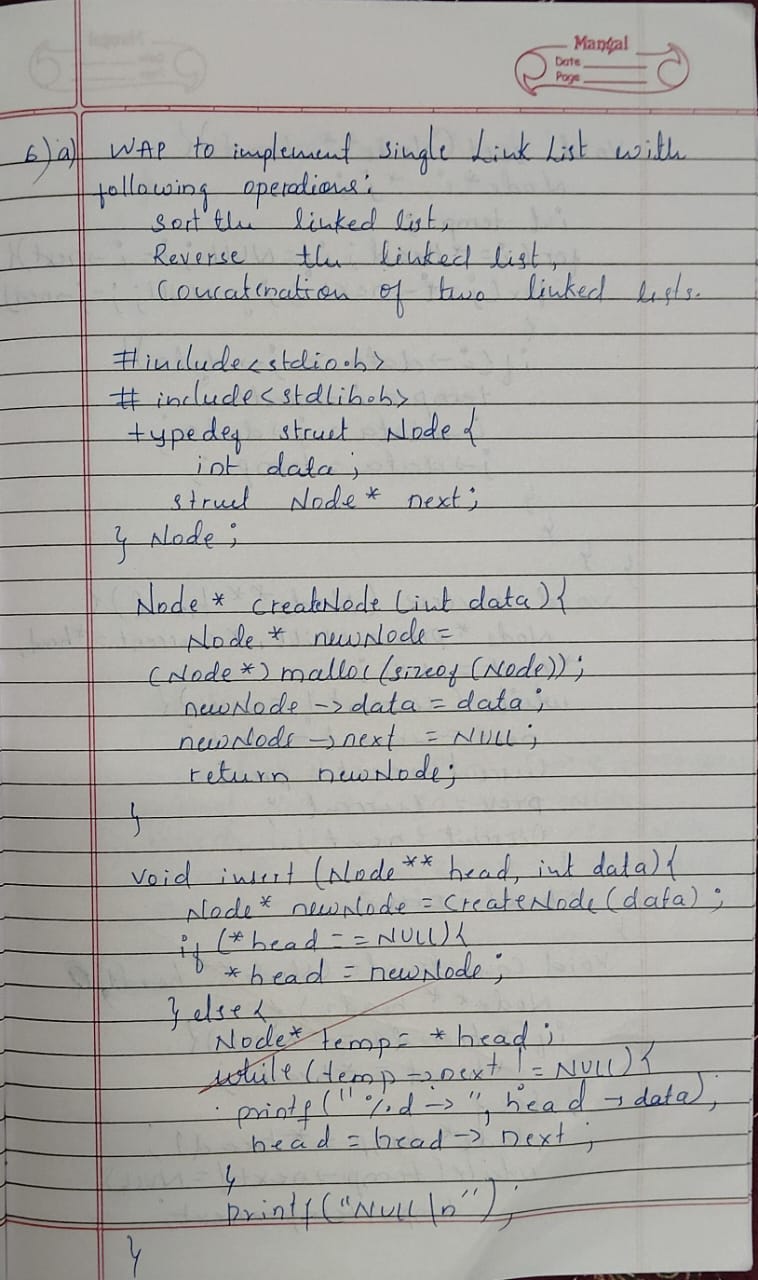 Mangal
Date
Page
6) a) WAP to implement single Link List with
following operations:
Sort the linked list,
Reverse the linked list,
Concatenation of two linked lists.
#include<stdio.h>
# include<stdlib.h>
typedef struct Node {
int data ;
struct Node* next ;
} Node ;
Node * createNode (int data) {
Node * newNode =
(Node*) malloc(sizeof(Node)) ;
newNode -> data = data ;
newNode -> next = NULL ;
return newNode ;
}
void insert (Node ** head, int data) {
Node* newNode = createNode(data) ;
if (*head == NULL) {
*head = newNode ;
} else {
Node* temp = *head ;
while (temp -> next != NULL) {
printf("%d ->", head -> data) ;
head = head -> next ;
}
printf("NULL\n") ;
}